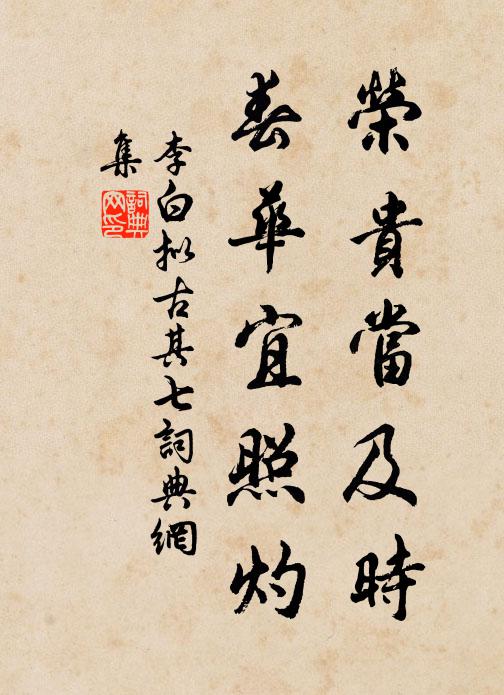 榮貴當及時
春華宜照灼
李白拟古其七詞典網
集
詞典
网印